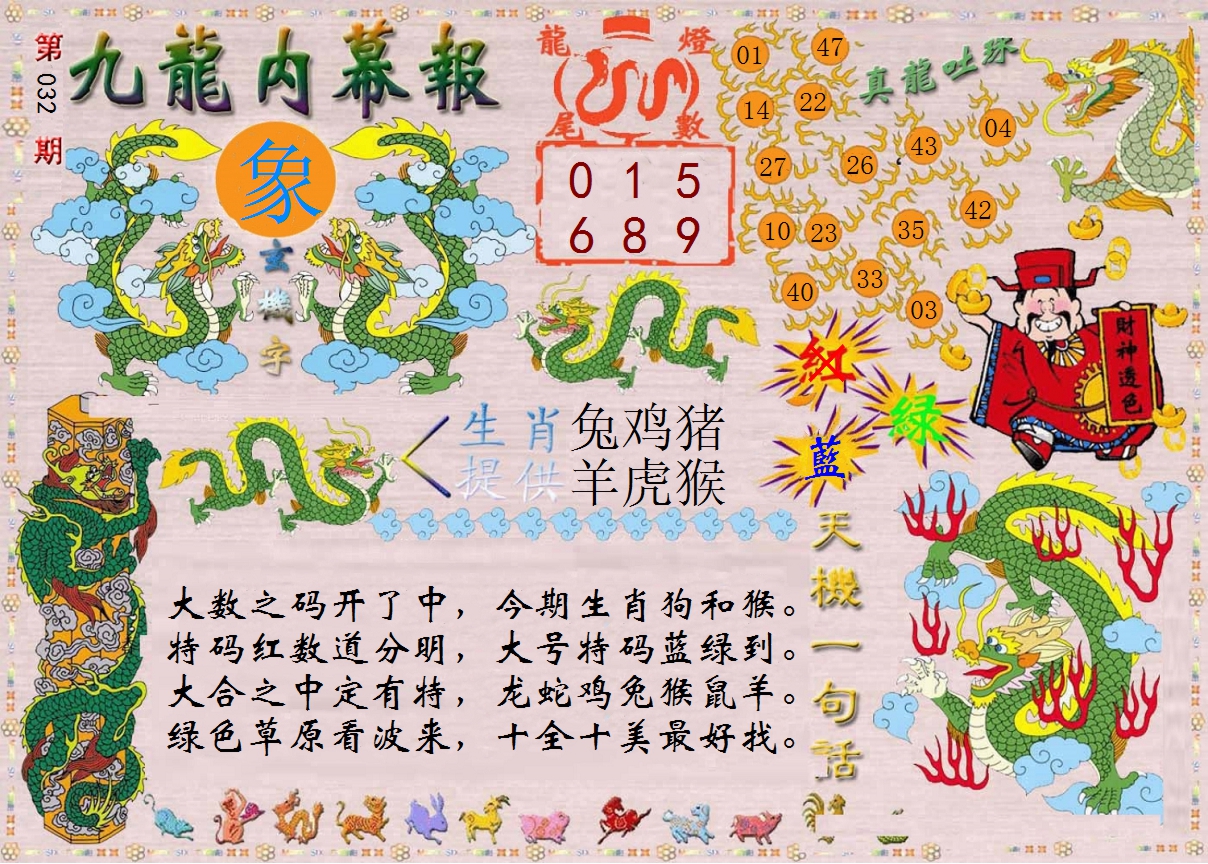 第032期
九龍内幕報
象
玄機字
龍燈
尾數
0 1 5
6 8 9
真龍吐珠
01
47
14
22
04
43
27
26
42
10
23
35
33
40
03
財神透色
紅
绿
藍
生肖提供
兔鸡猪
羊虎猴
天機一句話
大数之码开了中，今期生肖狗和猴。
特码红数道分明，大号特码蓝绿到。
大合之中定有特，龙蛇鸡兔猴鼠羊。
绿色草原看波来，十全十美最好找。